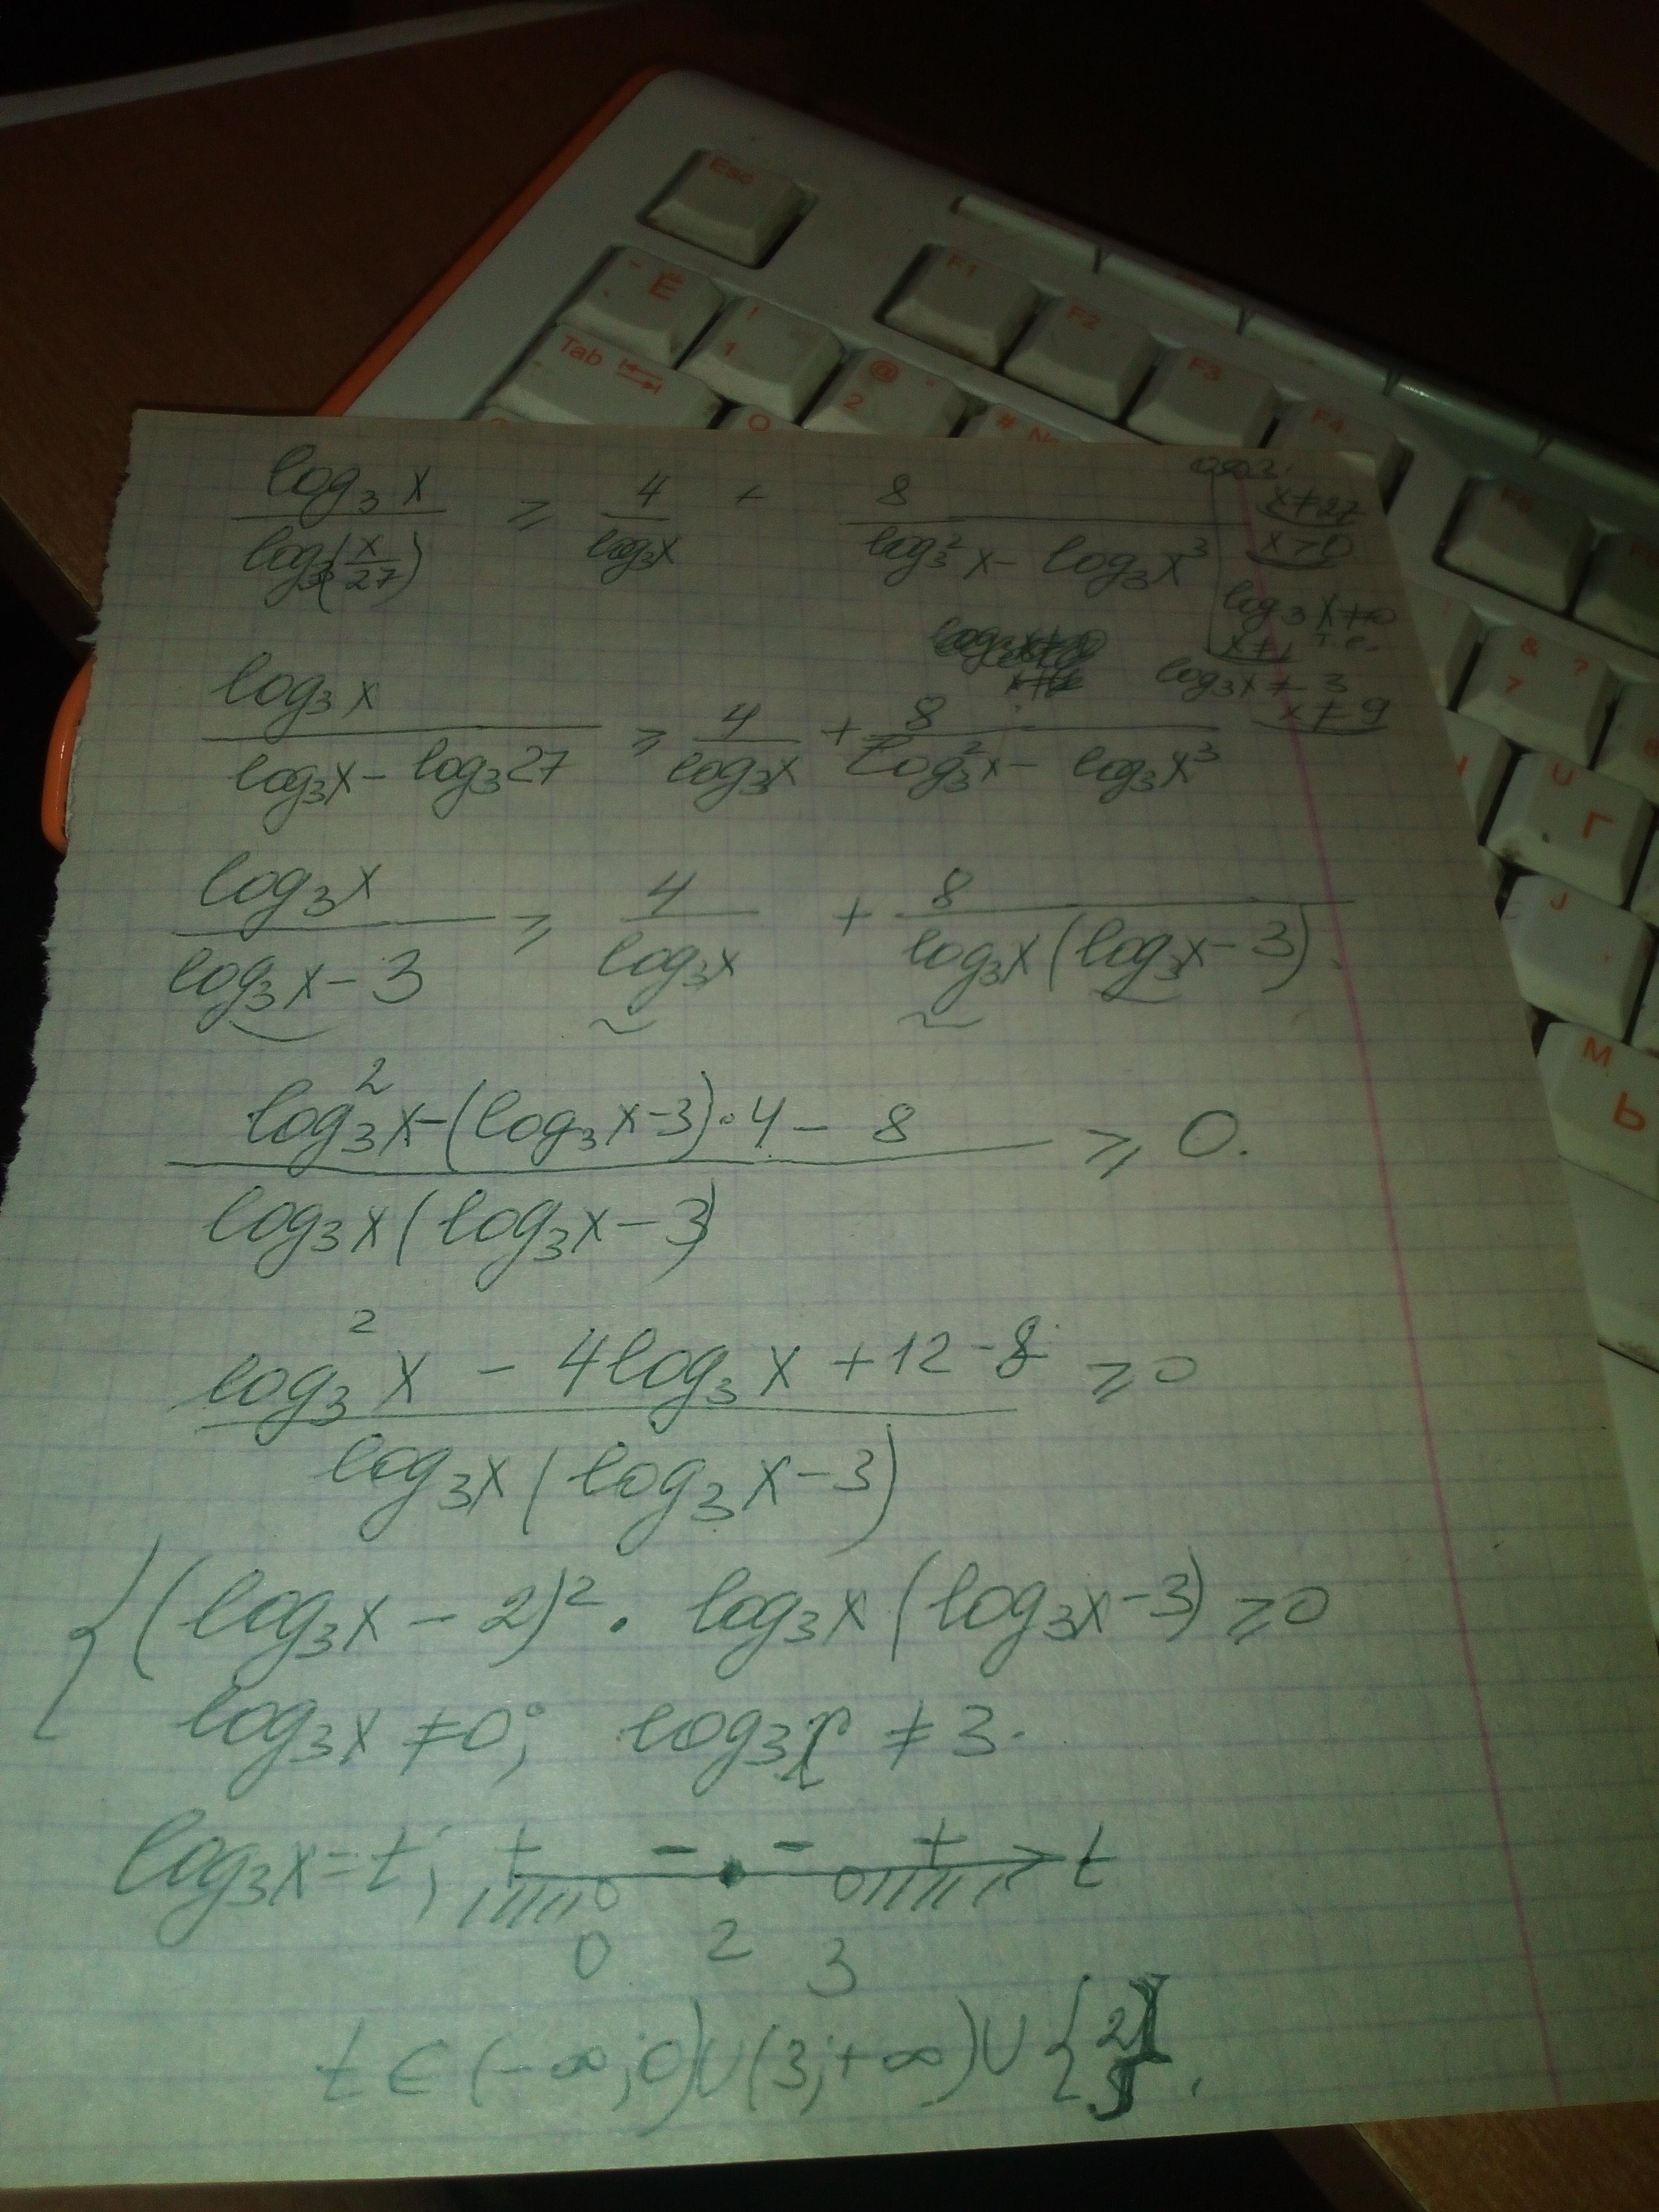 Esc
F1
F2
F3
F4
Ё
! 1
@ " 2
# №
Tab
& ? 7
U Г
J
M Ь
log₃x / log₃(x/27) ≥ 4/log₃x + 8/(log₃²x - log₃x³)
x≠27
x>0
log₃x≠0
x≠1 т.е.
log₃x≠3
x≠9
log₃x / (log₃x - log₃27) ≥ 4/log₃x + 8/(log₃²x - log₃x³)
log₃x / (log₃x - 3) ≥ 4/log₃x + 8/(log₃x(log₃x - 3))
(log₃²x - (log₃x - 3)·4 - 8) / (log₃x(log₃x - 3)) ≥ 0.
(log₃²x - 4log₃x + 12 - 8) / (log₃x(log₃x - 3)) ≥ 0
{ (log₃x - 2)² · log₃x(log₃x - 3) ≥ 0
log₃x ≠ 0; log₃x ≠ 3.
log₃x = t; + - - + t
0 2 3
t ∈ (-∞; 0)∪(3; +∞)∪{2}.